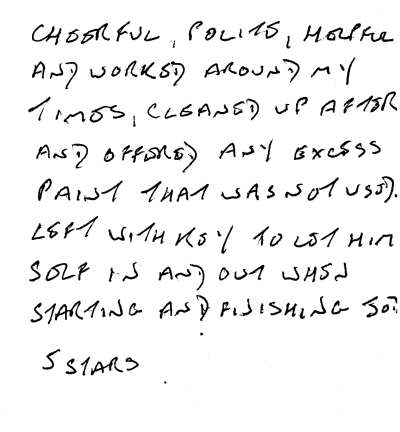 CHEERFUL, POLITE, HELPFUL
AND WORKED AROUND MY
TIMES, CLEANED UP AFTER
AND OFFERED ANY EXCESS
PAINT THAT WAS NOT USED.
LEFT WITH KEY TO LET HIM
SELF IN AND OUT WHEN
STARTING AND FINISHING JOB
5 STARS